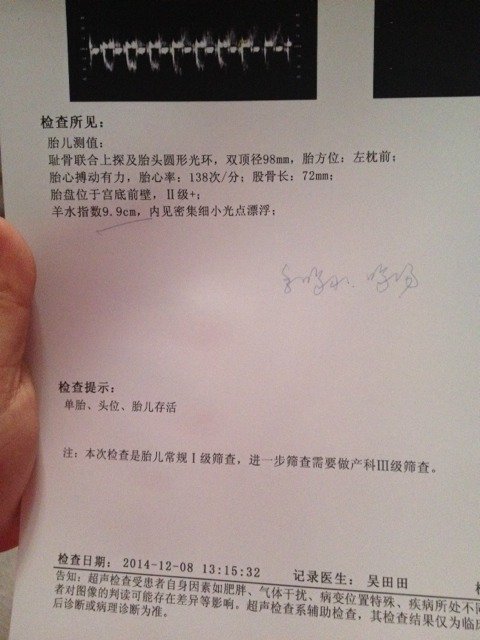 检查所见：
胎儿测值：
耻骨联合上探及胎头圆形光环，双顶径98mm，胎方位：左枕前；
胎心搏动有力，胎心率：138次/分；股骨长：72mm；
胎盘位于宫底前壁，Ⅱ级+；
羊水指数9.9cm，内见密集细小光点漂浮；
检查提示：
单胎、头位、胎儿存活
注：本次检查是胎儿常规Ⅰ级筛查，进一步筛查需要做产科Ⅲ级筛查。
检查日期： 2014-12-08 13:15:32 记录医生：吴田田
告知：超声检查受患者自身因素如肥胖、气体干扰、病变位置特殊、疾病所处不同
者对图像的判读可能存在差异等影响。超声检查系辅助检查，其检查结果仅为临床
后诊断或病理诊断为准。